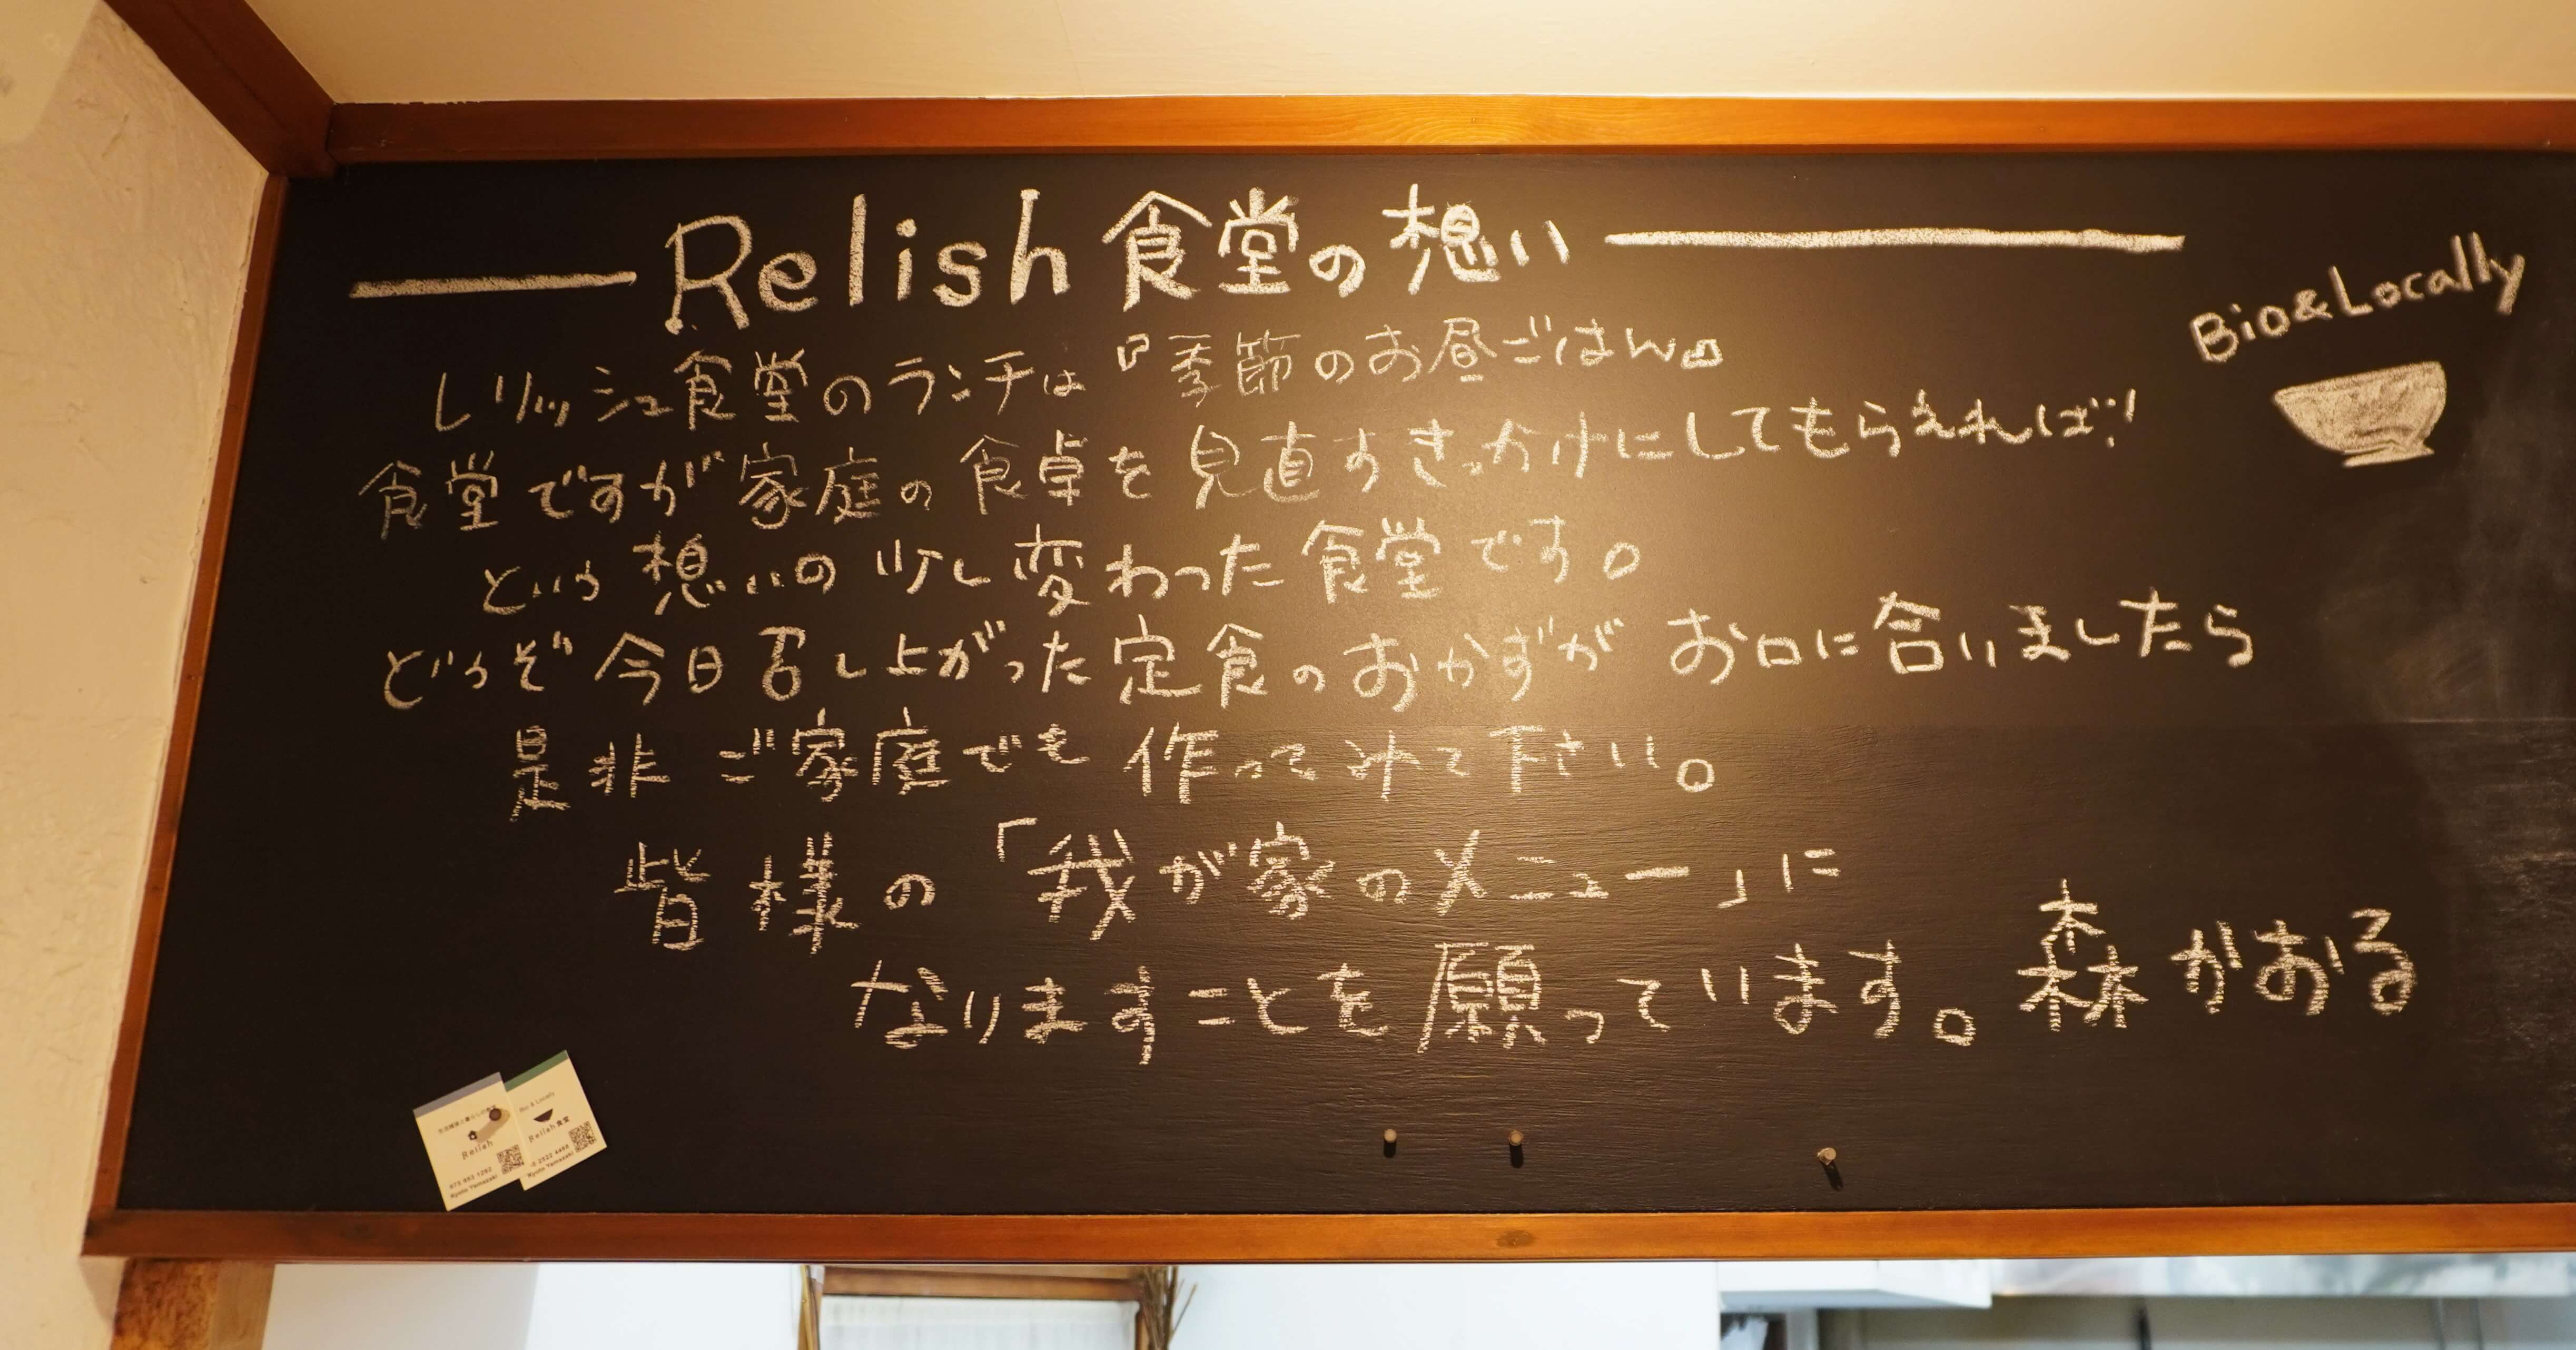 Relish食堂の想い
Bio&Locally
レリッシュ食堂のランチは『季節のお昼ごはん』
食堂ですが家庭の食卓を見直すきっかけにしてもらえれば!
という想いの少し変わった食堂です。
どうぞ今日召し上がった定食のおかずが お口に合いましたら
是非 ご家庭でも 作ってみて下さい。
皆様の「我が家のメニュー」に
なりますことを願っています。森かおる
Bio & Locally
Relish食堂
Kyoto Yamazaki
Relish
075 953 1292
Kyoto Yamazaki